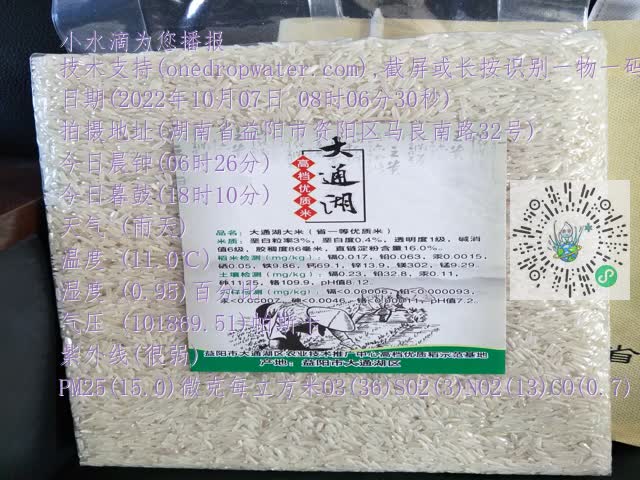 小水滴为您播报
技术支持(onedropwater.com),截屏或长按识别一物一码
日期(2022年10月07日 08时06分30秒)
拍摄地址(湖南省益阳市资阳区马良南路32号)
今日晨钟(06时26分)
今日暮鼓(18时10分)
天气 (雨天)
温度 (11.0℃)
湿度 (0.95)百分
气压 (101889.51)帕斯卡
紫外线(很弱)
PM25(15.0)微克每立方米O3(36)SO2(3)NO2(13)CO(0.7)
大通湖
高档优质米
品名：大通湖大米（省一等优质米）
米质：垩白粒率3%，垩白度0.4%，透明度1级，碱消
值6级，胶稠度86毫米，直链淀粉含量16.0%。
稻米检测（mg/kg）：镉0.017，铅0.063，汞0.0015，
硒0.05，铁9.86，钙69.1，锌13.9，镁302，锰9.29。
土壤检测（mg/kg）：镉0.23，铅32.8，汞0.11，
砷11.25，铬109.9，pH值8.12。
益阳市大通湖区农业技术推广中心高档优质稻示范基地
产地：益阳市大通湖区
省